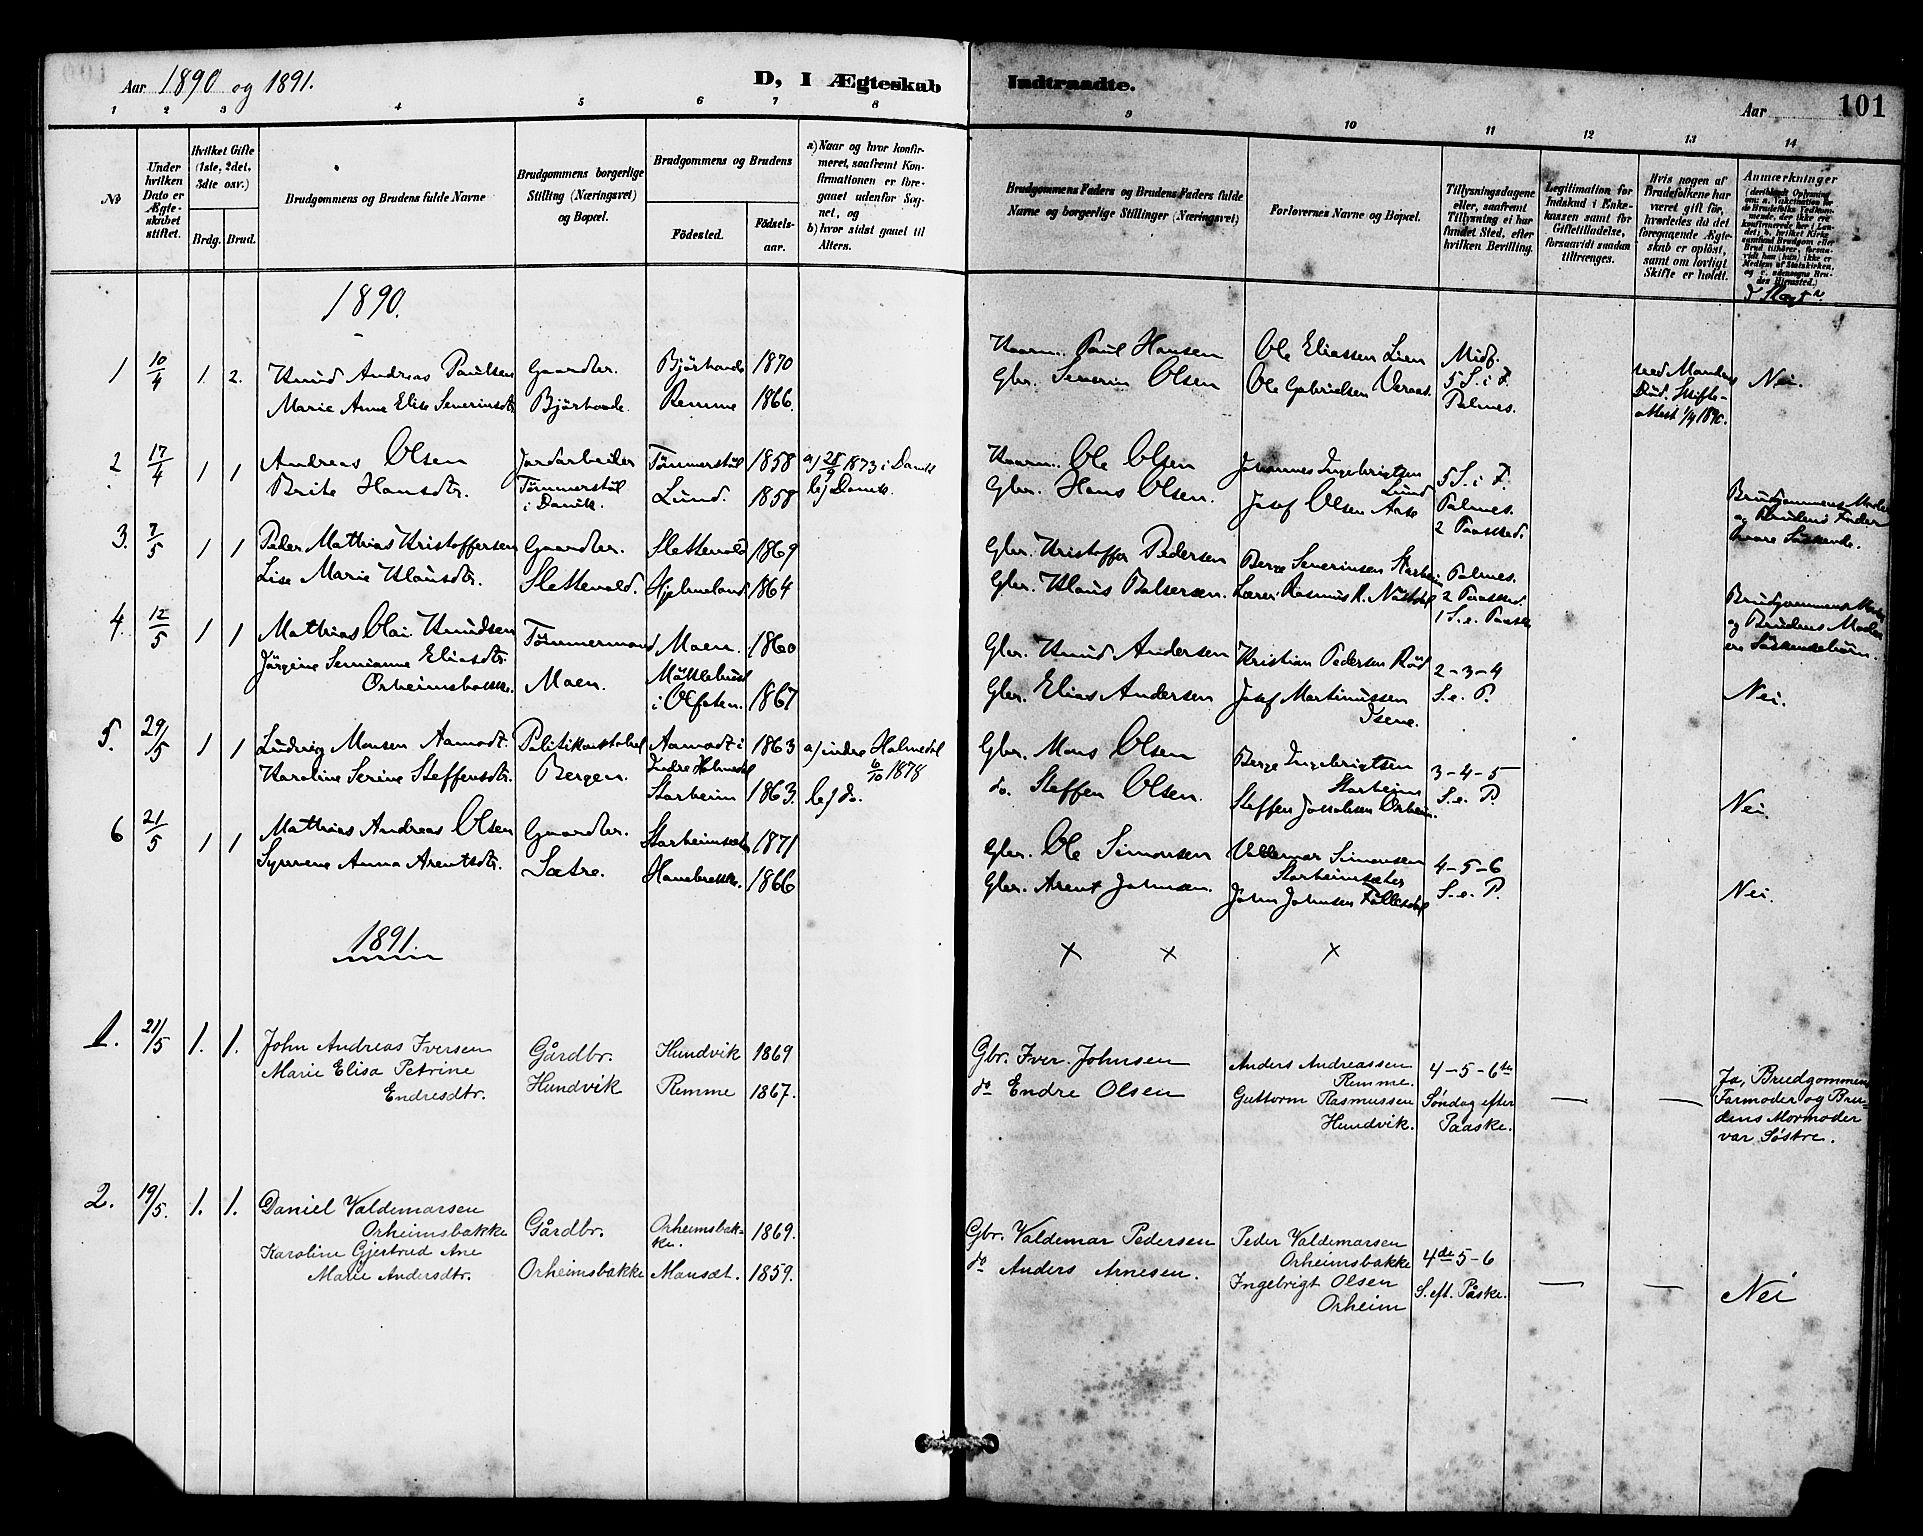 Aar 1890 og 1891.
D, I Ægteskab
Indtraadte.
Aar
101
1 2 3 4 5 6 7 8
9 10 11 12 13 14
No
Under hvilken Dato er Ægteskabet stiftet.
Hvilket Gifte (1ste, 2det, 3die osv.)
Brdg. Brud.
Brudgommens og Brudens fulde Navne
Brudgommens borgerlige Stilling (Næringsvei) og Bopæl.
Brudgommens og Brudens
Födested.
Födsels-aar.
a) Naar og hvor konfirmeret, saafremt Konfirmationen er foregaaet udenfor Sognet, og
b) hvor sidst gaaet til Alters.
Brudgommens Faders og Brudens Faders fulde Navne og borgerlige Stillinger (Næringsvei)
Forlovernes Navne og Bopæl.
Tillysningsdagene eller, saafremt Tillysning ei har fundet Sted, efter hvilken Bevilling.
Legitimation for Indskud i Enkekassen samt for Giftetilladelse, forsaavidt saadan tiltrænges.
Hvis nogen af Brudefolkene har været gift för, hvorledes da det foregaaende Ægteskab er oplöst, samt om lovligt Skifte er holdt.
Anmærkninger
1890.
1 10/4 1. 2. Knud Andreas Paulsen Gaardbr. 1870
Marie Anne Elise Severinsdtr. Remme 1866.
Paul Hansen Ole Eliassen Lien Midf.
Gbr. Severin Olsen Ole Gabrielsen 5 S. i F.
Palmes.
ved Mandens
Död. Skifte-
attest 1/4 1890.
Nei.
2 17/4 1 1 Andreas Olsen Jordarbeider Tömmerstöl 1858 a) 1873 i Davik
Brite Hansdtr. Tömmerstöl
i Davik. Lund. 1858 b) Davik.
Ole Olsen Johannes Ingebrigtsen
Lund 5 S. i F.
Gbr. Hans Olsen. Josef Olsen Aase Palmes.
2 Paasked.
3. 7/5 1 1 Peder Matthias Kristoffersen Gaardbr. Slettevold 1869
Lise Marie Klausdtr. Slettevold. Hjelmeland 1864
Gbr. Kristoffer Pedersen Berge Severinsen Starheim Palmes.
Gbr. Klaus Balsersen. Lærer Rasmus R. Nöstdal 2 Paasked.
1 S. e. Paaske
Brudgommens Moder
og Brudens Fader
vare Söskende.
4. 12/5 1 1 Matthias Olai Knudsen Tömmermand Maen. 1860
Jörgine Semianne Eliasdtr.
Orheimsbakke. Maen. i Olfoten. 1867
Gbr. Knud Andersen Kristian Pedersen Röd 2-3-4
Gbr. Elias Andersen Josef Martinussen
Isene. S. e. P.
Brudgommens Moder
og Brudens Moder
ere Söskendebörn.
Nei.
5. 29/5 1 1 Ludvig Monsen Aamodt. Politikonstabel Aamodt i
Indre Holmedal 1863 a) indre Holmedal
6/10 1878
Karoline Serine Steffensdtr. Bergen. Starheim 1863. b) do.
Gbr. Mons Olsen Berge Ingebrigtsen
Starheim 3-4-5
do. Steffen Olsen. Steffen Jakobsen Orheim. S. e. P.
Nei.
6 21/5 1 1 Matthias Andreas Olsen Gaardbr. Starheimsæter 1871
Synneve Anna Arentsdtr. Sætre. Hanebrekke. 1866
Gbr. Ole Simonsen Valdemar Simonsen
Starheimsæter 4-5-6
Gbr. Arent Johnsen. John Johnsen Följesdal S. e. P.
Nei.
1891.
x x x
1. 21/5 1. 1. John Andreas Iversen Gårdbr. Hundvik 1869
Marie Elisa Petrine
Endresdtr. Hundvik Remme 1867.
Gbr. Iver Johnsen Anders Andreassen
Remme. 4-5-6te
do Endre Olsen Guttorm Rasmussen
Hundvik. Söndag efter
Paaske.
Ja, Brudgommens
Farmoder og Bru-
dens Mormoder
var Söstre.
2. 19/5. 1. 1. Daniel Valdemarsen
Orheimsbakke Gårdbr. Orheimsbak-
ke. 1869.
Karoline Gjertrud Ane
Marie Andersdtr. Orheimsbakke Mansæt. 1859.
Gbr. Valdemar Pedersen Peder Valdemarsen
Orheimsbakke 4de 5-6
do Anders Arnesen. Ingebrigt Olsen
Orheim S. eft. Påske.
Nei